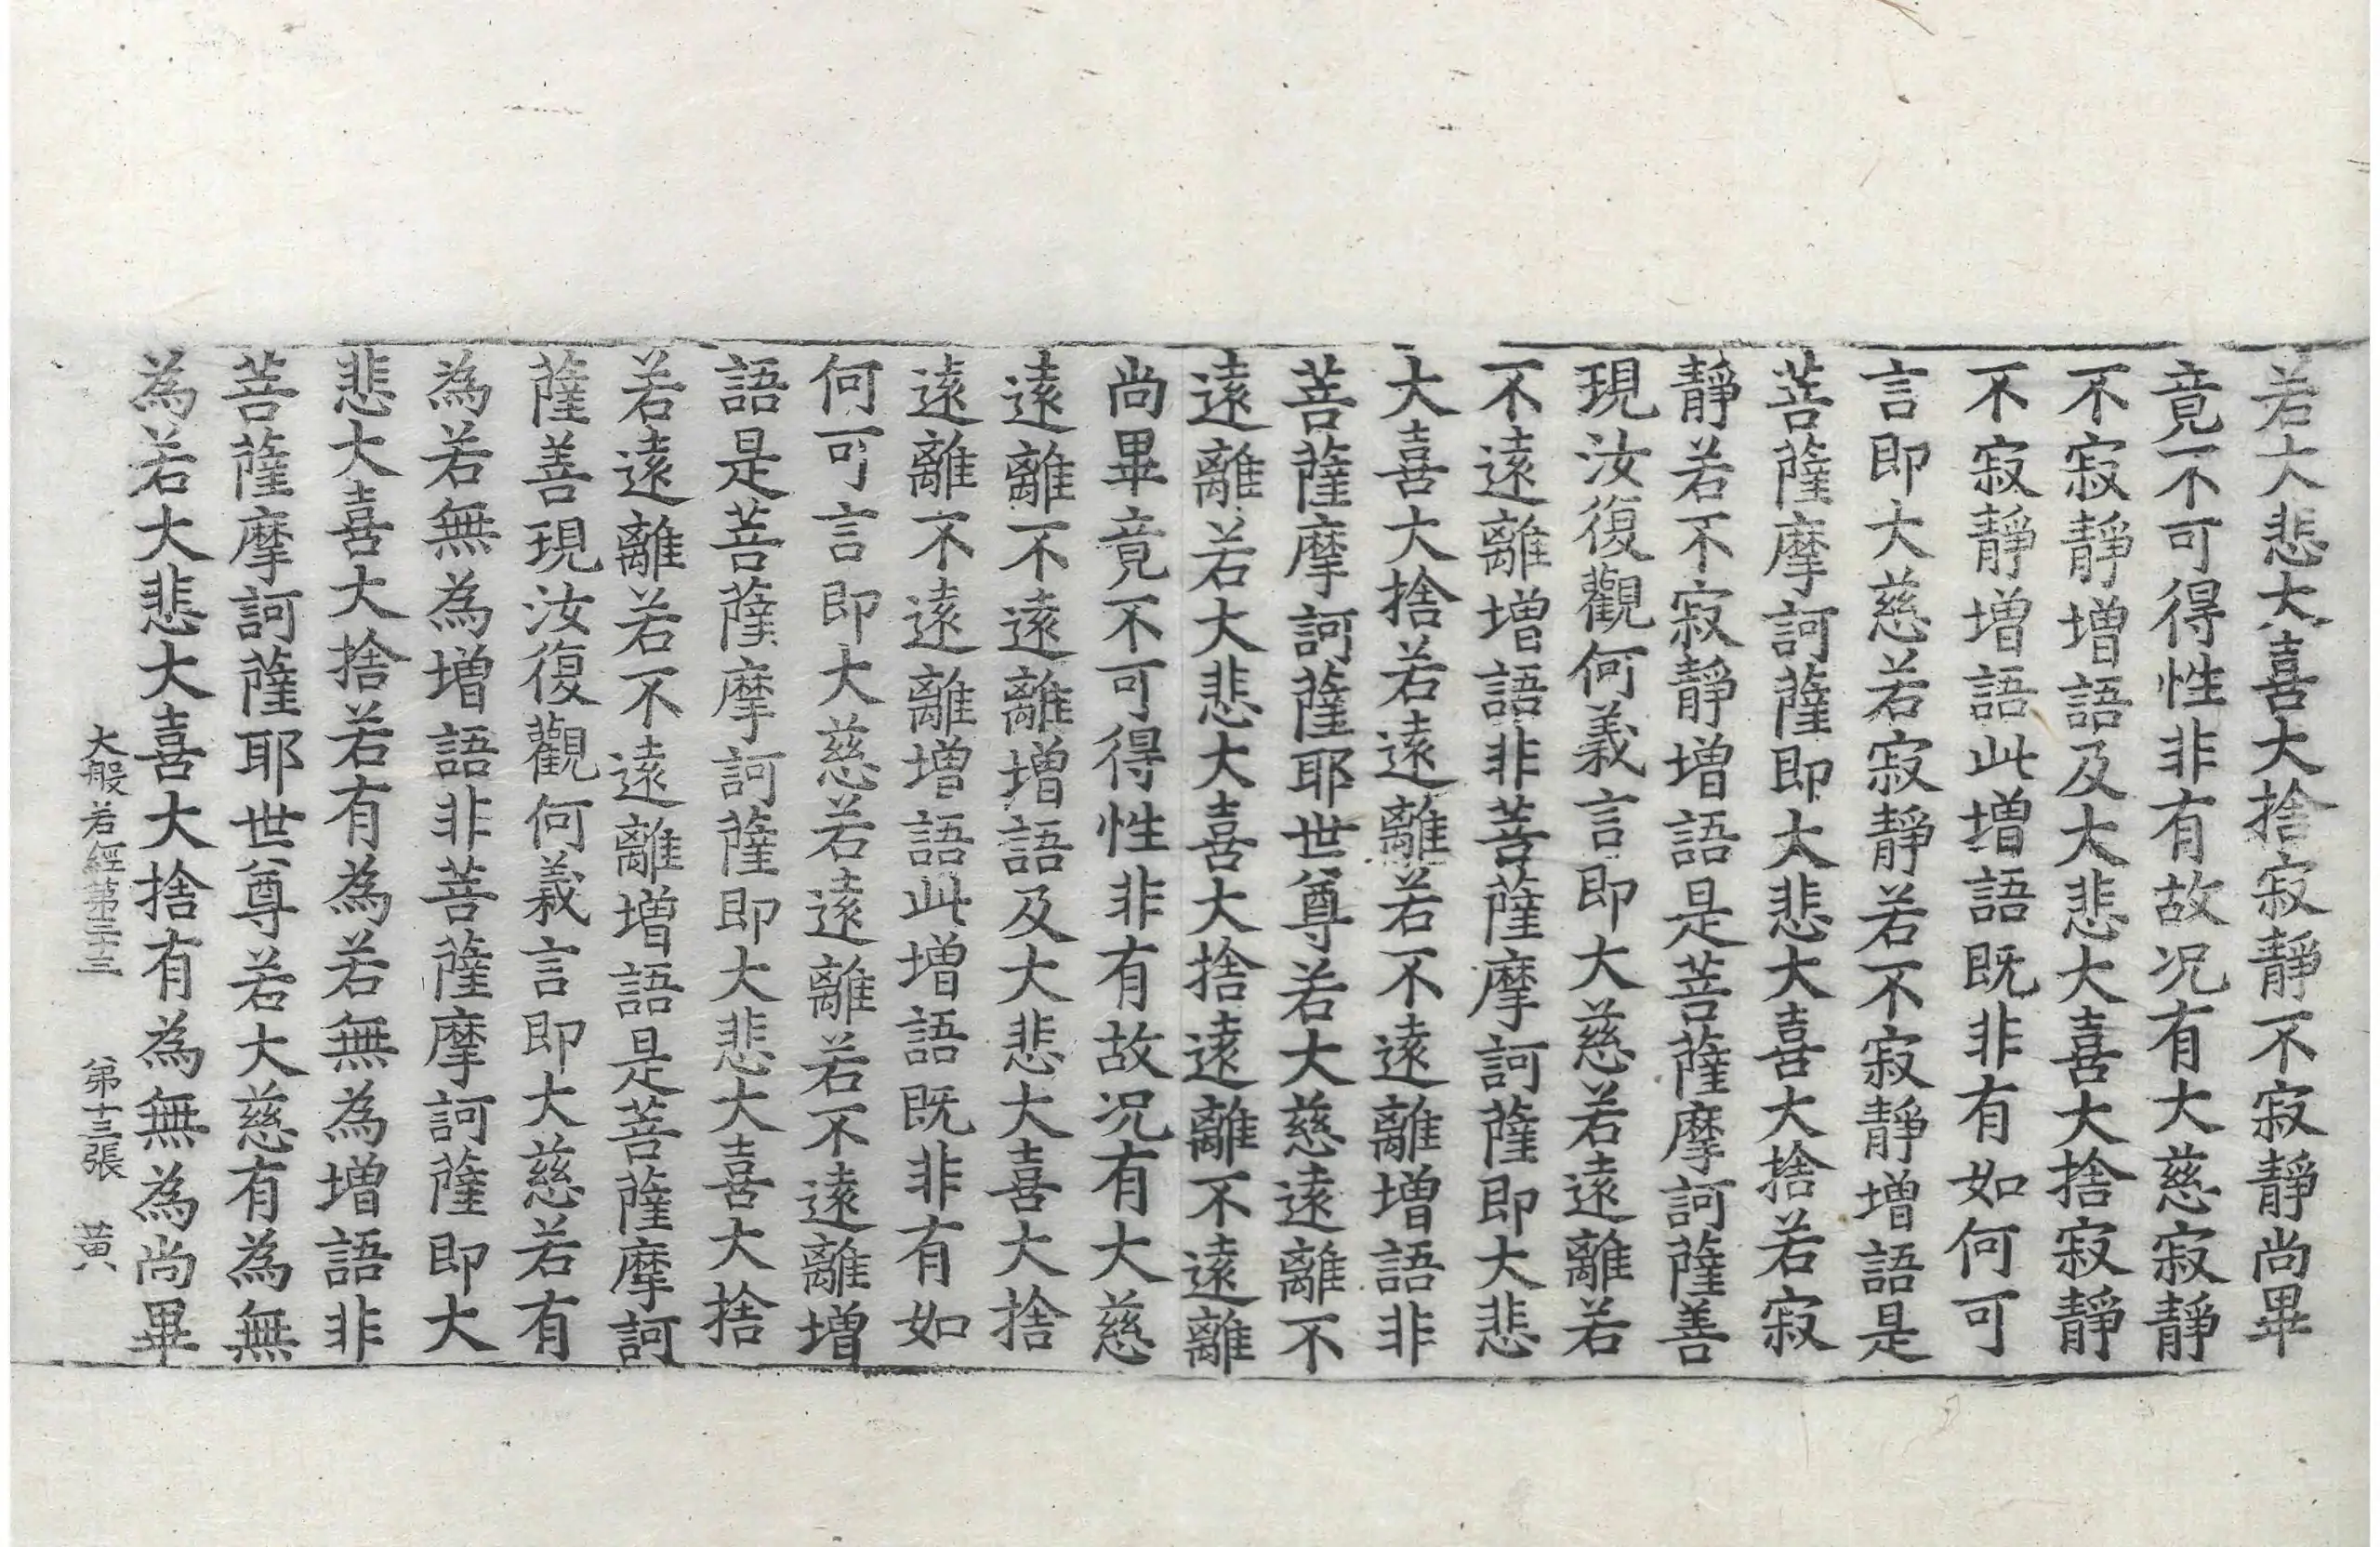 若大悲大喜大捨寂靜不寂靜尚畢
竟不可得性非有故况有大慈寂靜
不寂靜增語及大悲大喜大捨寂靜
不寂靜增語此增語既非有如何可
言即大慈若寂靜若不寂靜增語是
菩薩摩訶薩即大悲大喜大捨若寂
靜若不寂靜增語是菩薩摩訶薩善
現汝復觀何義言即大慈若遠離若
不遠離增語非菩薩摩訶薩即大悲
大喜大捨若遠離若不遠離增語非
菩薩摩訶薩耶世尊若大慈遠離不
遠離若大悲大喜大捨遠離不遠離
尚畢竟不可得性非有故况有大慈
遠離不遠離增語及大悲大喜大捨
遠離不遠離增語此增語既非有如
何可言即大慈若遠離若不遠離增
語是菩薩摩訶薩即大悲大喜大捨
若遠離若不遠離增語是菩薩摩訶
薩善現汝復觀何義言即大慈若有
為若無為增語非菩薩摩訶薩即大
悲大喜大捨若有為若無為增語非
菩薩摩訶薩耶世尊若大慈有為無
為若大悲大喜大捨有為無為尚畢
大般若經第三十三 第十三張 黃